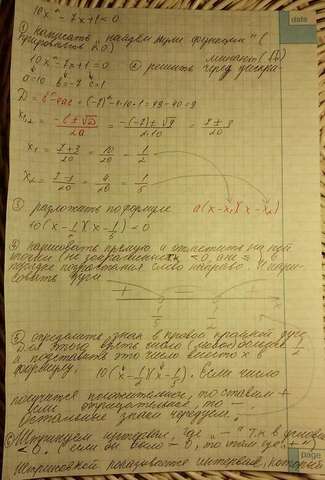 10x² - 7x + 1 < 0
① написать „ найдем нули функции " (
10x² - 7x + 1 = 0 ② решить через дискри-
минант (√D)
a=10 b=-7 c=1
D = b² - 4ac = (-7)² - 4·10·1 = 49 - 40 = 9
x₁,₂ = -b ± √D / 2a = -(-7) ± √9 / 2·10 = 7 ± 3 / 20
x₁ = 7+3 / 20 = 10 / 20 = 1/2
x₂ = 7-3 / 20 = 4 / 20 = 1/5
③ разложить по формуле a(x-x₁)(x-x₂)
10(x - 1/2)(x - 1/5) < 0
нарисовать прямую и отметить на ней
точки (не закрашенные < 0, в
порядке возрастания слева направо. И нари-
совать дуги
+ - +
1/5 1/2
⑤ определите знак в правой крайней дуге
Для этого взять число (любое) больше 1/2
и подставить это число вместо x в
формулу. 10(x - 1/2)(x - 1/5). Если число
получится положительное, то ставим +
если отрицательное, то -
остальные знаки чередуем.
⑥ Штрихуем интервал, где „ - " т.к в условии
< 0. (если бы было > 0, то там где „+")
Штриховкой показывается интервал, который
date
page